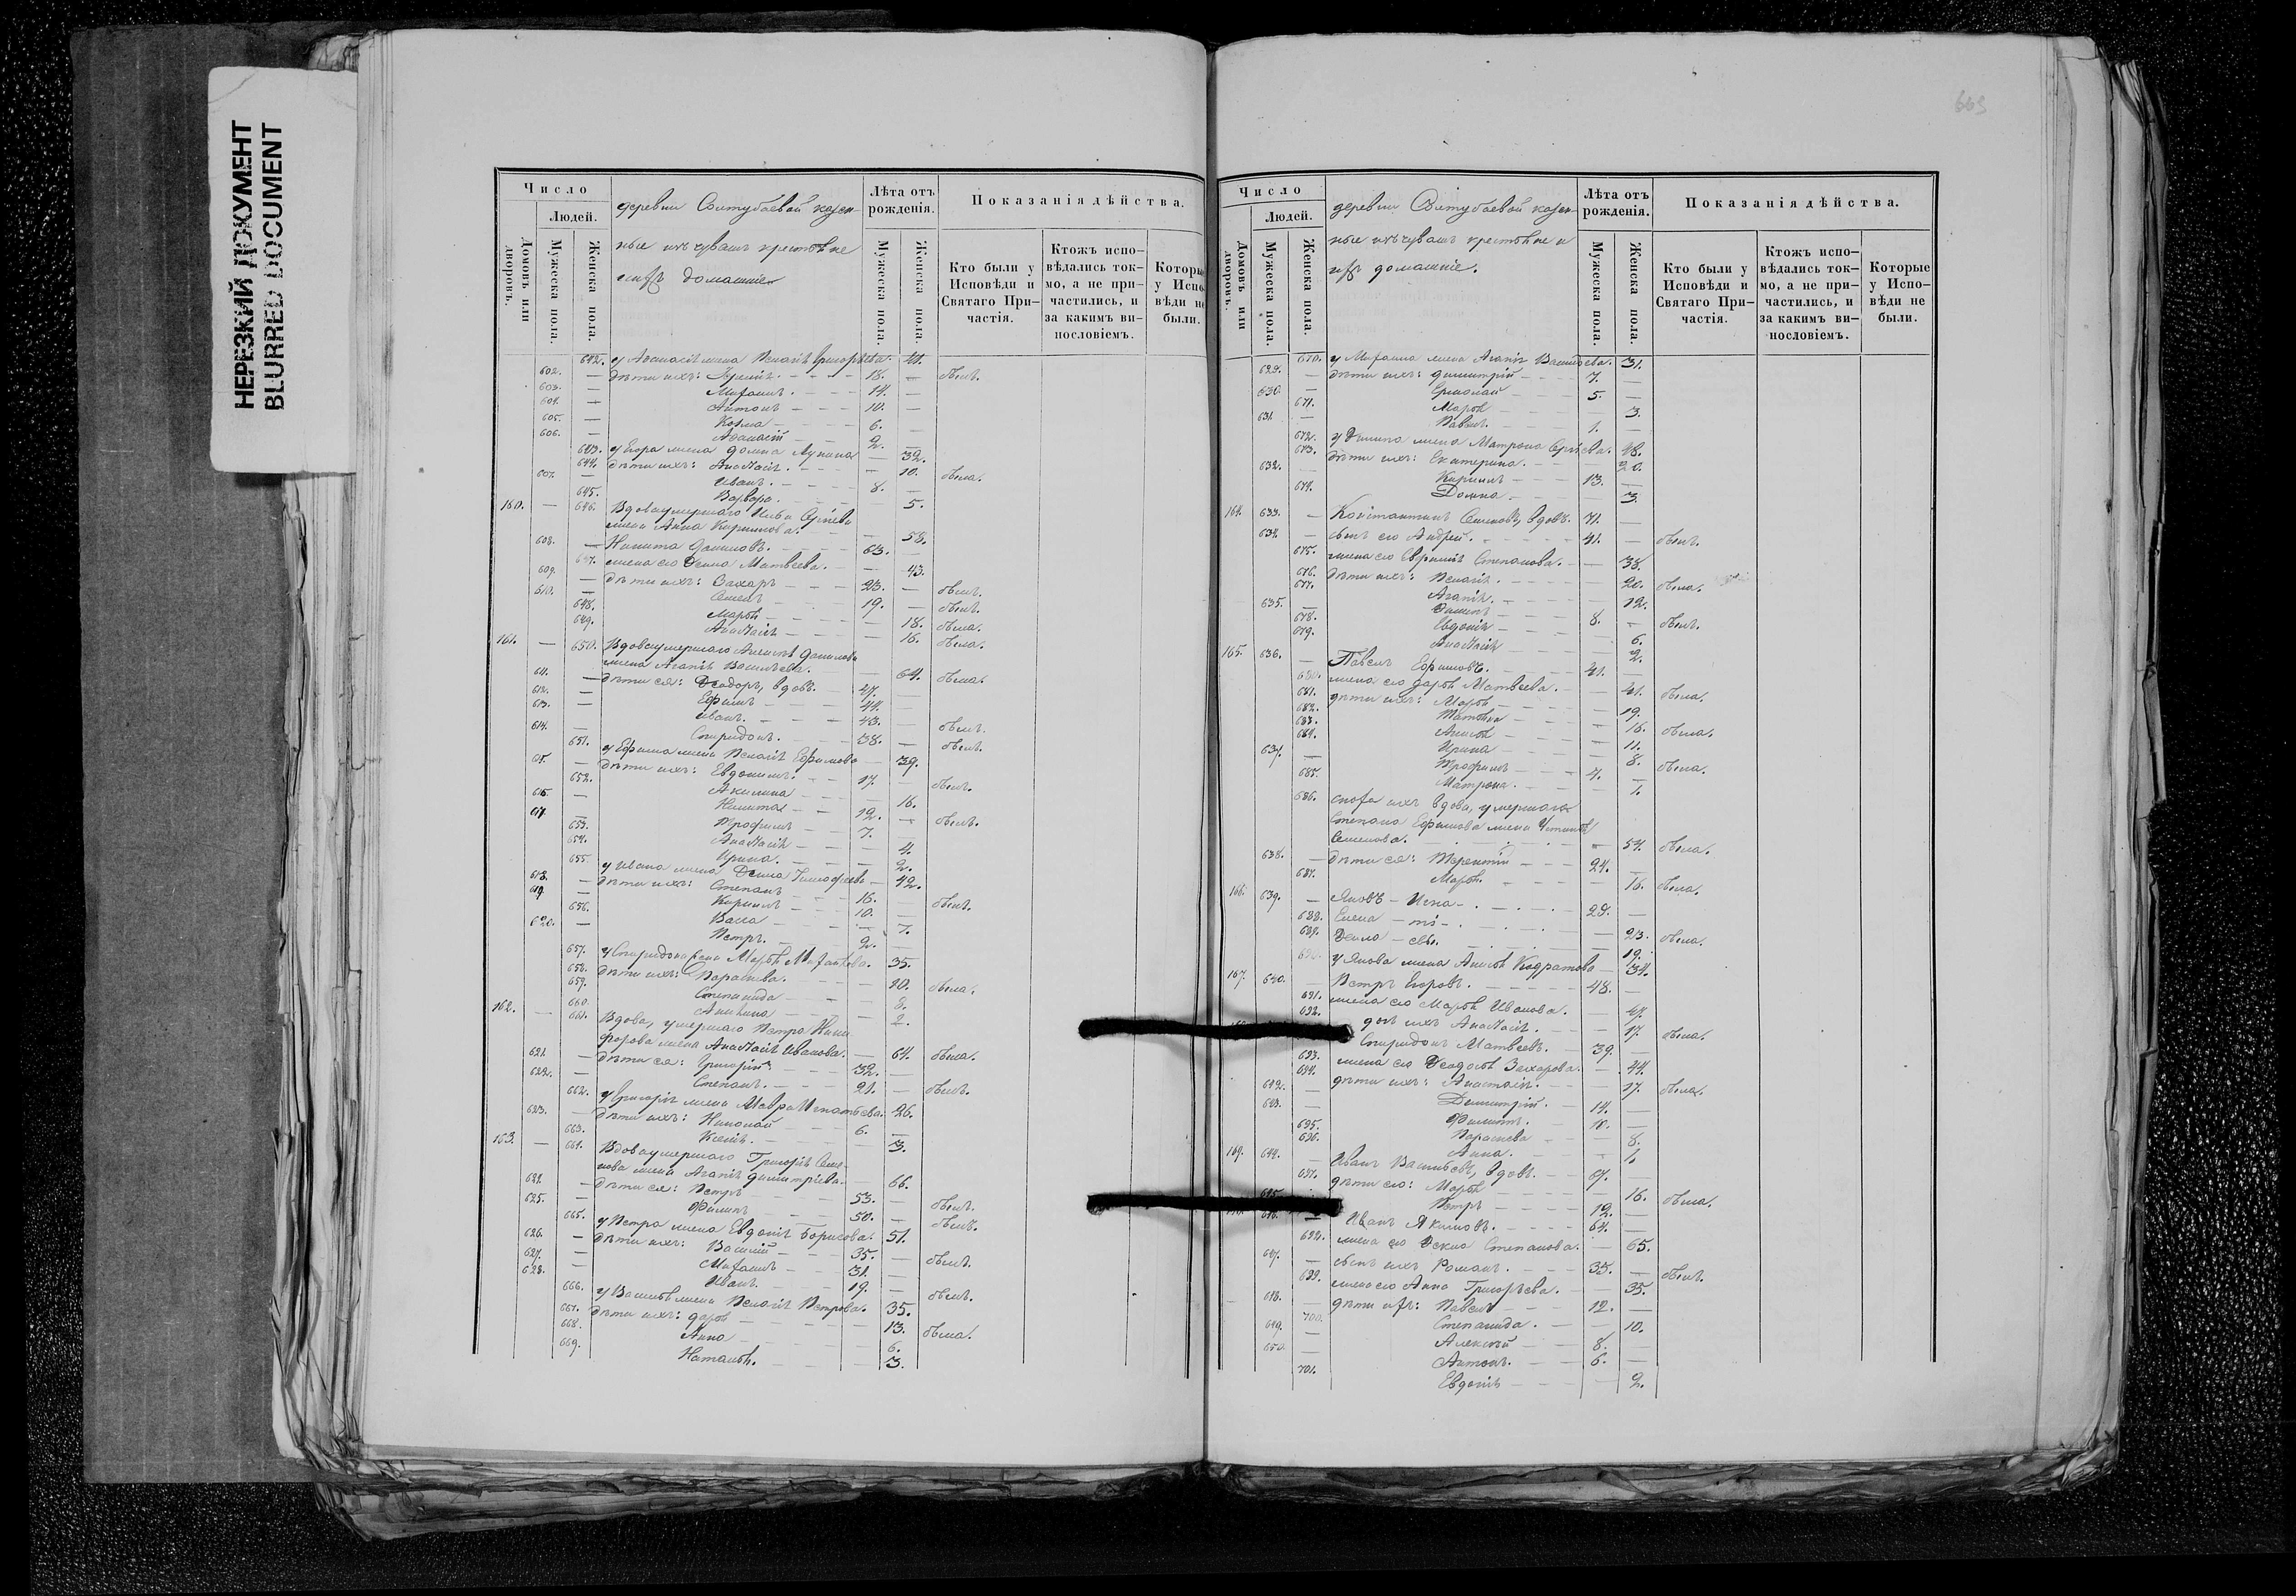 НЕРЕЗКИЙ ДОКУМЕНТ
BLURRED DOCUMENT
Число
Людей.
Домовъ или дворовъ.
Мужеска пола.
Женска пола.
деревни казен-
ные изъ чувашъ крестьяне
и ихъ домашніе
Лѣта отъ рожденія.
Мужеска пола.
Женска пола.
Показанія дѣйства.
Кто были у Исповѣди и Святаго При-частія.
Ктожъ испо-вѣдались ток-мо, а не при-частились, и за какимъ ви-нословіемъ.
Которые у Испо-вѣди не были.
642. у Аѳанасія жена Пелагія Григорьева. 41.
602. — дѣти ихъ: 18. — былъ.
603. — Михаилъ. 14. —
604. — Антонъ 10. —
605. — Козма 6. —
606. — Аѳанасій 2. —
643. у Егора жена Домна Лукина — 32.
644. дѣти ихъ: Анастасія. — 10. была.
607. — Иванъ. 8. —
645. Варвара. — 5.
160. — 646. Вдова умершаго Сергѣева
жена Анна Кириллова. — 58.
608. — Никита Даниловъ. 63. —
647. жена его Матвѣева. — 43.
609. — дѣти ихъ: Захаръ 23. — былъ.
610. — Семенъ 19. — былъ.
648. Марѳа — 18. была.
649. Анастасія — 16. была.
161. — 650. Вдова умершаго Алексѣя Данилова
жена Агапія Васильева. — 64. была.
611. — дѣти ея: Ѳеодоръ, вдовъ. 47. —
612. — Ефимъ 44. —
613. — Иванъ. 43. — былъ.
614. — Спиридонъ. 38. — былъ.
651. у Ефима жена Пелагія Ефимова — 39.
615. — дѣти ихъ: Евдокимъ. 17. — былъ.
652. Акилина — 16.
616. — Никита 12. — былъ.
617. — Трофимъ 7. —
653. Анастасія — 4.
654. Ирина. — 2.
655. у Ивана жена Тимофеева — 42.
618. — дѣти ихъ: Степанъ 16. — былъ.
619. — Кириллъ 10. —
656. Васса — 7.
620. — Петръ. 2. —
657. у Спиридона жена Марѳа Михайлова. 35.
658. дѣти ихъ: Параскева. — 10. была.
659. Степанида — 8.
660. — 2.
162. — 661. Вдова, умершаго Петра Ники-
форова жена Анастасія Иванова. — 64. была.
621. — дѣти ея: Григорій 32. —
622. — Степанъ. 21. — былъ.
662. у Григорія жена Мавра Игнатьева. 26.
623. — дѣти ихъ: Николай 6. —
663. Ксенія. — 3.
163. — 664. Вдова умершаго Григорія Семе-
нова жена Агапія Димитріева. — 66.
624. — дѣти ея: Петръ 53. — былъ.
625. — Филипъ 50. — былъ.
665. у Петра жена Евдокія Борисова. 51.
626. — дѣти ихъ: Василій 35. — былъ.
627. — Михаилъ 31. —
628. — Иванъ. 19. — былъ.
666. у Василія жена Пелагія Петрова. 35.
667. дѣти ихъ: Дарья 13. была.
668. Анна 6.
669. Наталья. 3.
603
Число
Людей.
Домовъ или дворовъ.
Мужеска пола.
Женска пола.
деревни казен-
ные изъ чувашъ крестьяне и
ихъ домашніе.
Лѣта отъ рожденія.
Мужеска пола.
Женска пола.
Показанія дѣйства.
Кто были у Исповѣди и Святаго При-частія.
Ктожъ испо-вѣдались ток-мо, а не при-частились, и за какимъ ви-нословіемъ.
Которые у Испо-вѣди не были.
670. у Михаила жена Агапія Васильева. 31.
629. — дѣти ихъ: Димитрій 7. —
630. — Ермолай 5. —
671. Марѳа — 3.
631. — Павелъ. 1. —
672. у Филипа жена Матрона Сергѣева. 48.
673. дѣти ихъ: Екатерина. — 20.
632. — Кириллъ 13. —
674. Домна — 3.
164. 633. — Константинъ Семеновъ, вдовъ. 71. —
634. — сынъ его Андрей. 41. — былъ.
675. жена его Евфимія Степанова. — 38.
676. дѣти ихъ: Пелагія. — 20. была.
677. Агапія. — 12.
635. — 8. — былъ.
678. Евдокія — 6.
679. Анастасія — 2.
165. 636. — Павелъ Ефимовъ. 41. —
680. жена его Дарья Матвѣева. — 41. была.
681. дѣти ихъ: Марѳа — 19.
682. Татьяна — 16. была.
683. Анисья — 11.
684. Ирина — 8. была.
637. — Трофимъ 4. —
685. Матрона. — 1.
686. сноха ихъ вдова, умершаго
Степана Ефимова жена Устинья
Семенова. — 54. была.
638. — дѣти ея: Терентій 24. —
687. Марѳа. — 16. была.
166. 639. — Яковъ 29. —
688. Елена — 23. была.
689. — 19.
690. у Якова жена Анисья Кодратова — 34.
167. 640. — Петръ Егоровъ. 48. —
691. жена его Марѳа Иванова. — 47.
692. дочь ихъ Анастасія. — 17. была.
Спиридонъ Матвѣевъ. 39. —
693. жена его Ѳеодосья Захарова. — 44.
694. дѣти ихъ: Анастасія. — 17. была.
642. — Димитрій. 14. —
643. — Филипъ. —
695. Параскева — 8.
696. Анна. — 1.
169. 644. — Иванъ Васильевъ, вдовъ. 67. —
697. дѣти его: Марѳа — 16. была.
645. — Петръ 12. —
646. — Иванъ Якимовъ. 64. —
698. жена его Степанова. — 65.
647. — сынъ ихъ Романъ. 35. — былъ.
699. жена его Анна Григорьева. — 35.
648. — дѣти ихъ: Павелъ 12. —
700. Степанида. — 10.
649. — Алексѣй 8. —
650. — Антонъ. 6. —
701. Евдокія — 2.